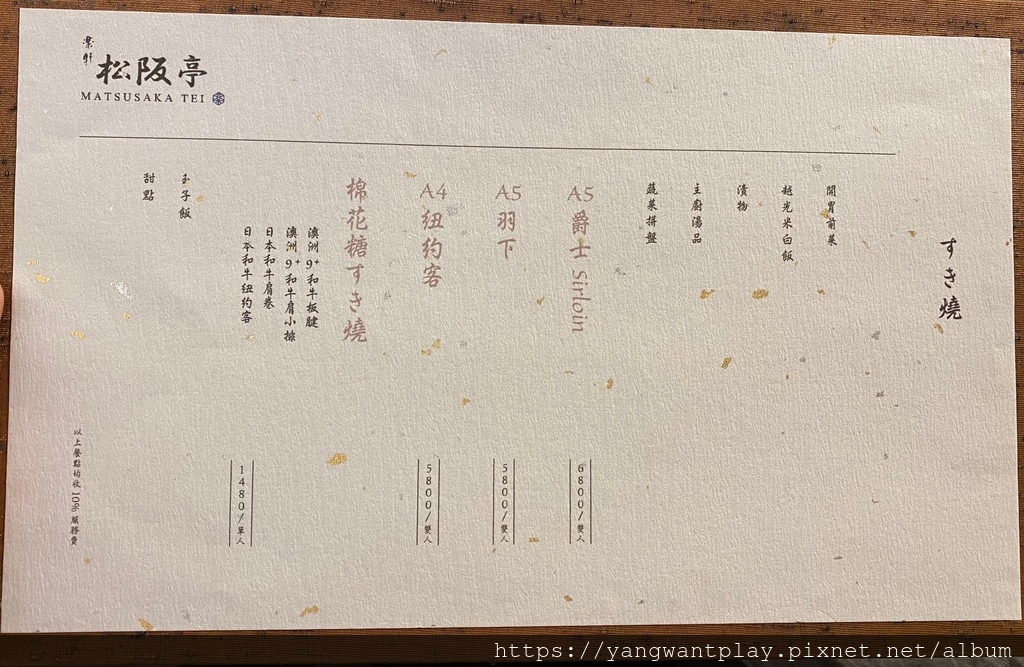 樂軒
松阪亭
MATSUSAKA TEI
すき燒
開胃前菜
越光米白飯
漬物
主廚湯品
蔬菜拼盤
A5 爵士 Sirloin
6800/雙人
A5 羽下
5800/雙人
A4 纽約客
5800/雙人
棉花糖すき燒
澳洲 9+ 和牛板腱
澳洲 9+ 和牛肩小排
日本和牛肩卷
日本和牛纽約客
1480/單人
玉子飯
甜點
以上餐點均收 10% 服務費
https://yangwantplay.pixnet.net/album